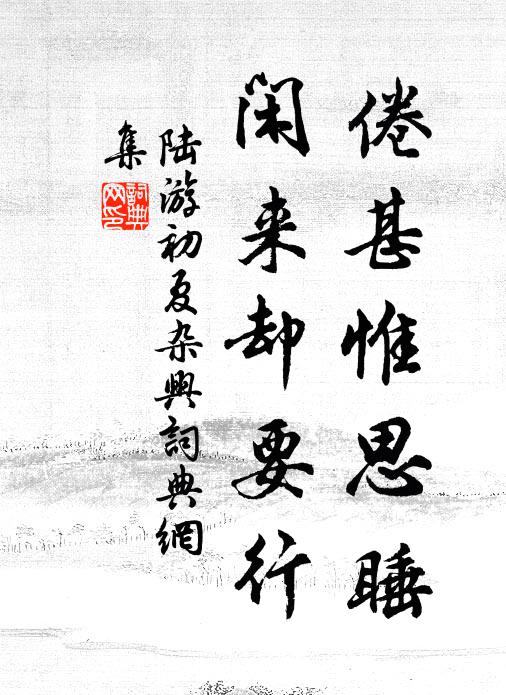 倦甚惟思睡
闲来却要行
陆游初夏杂兴詞典網
集
詞典網印